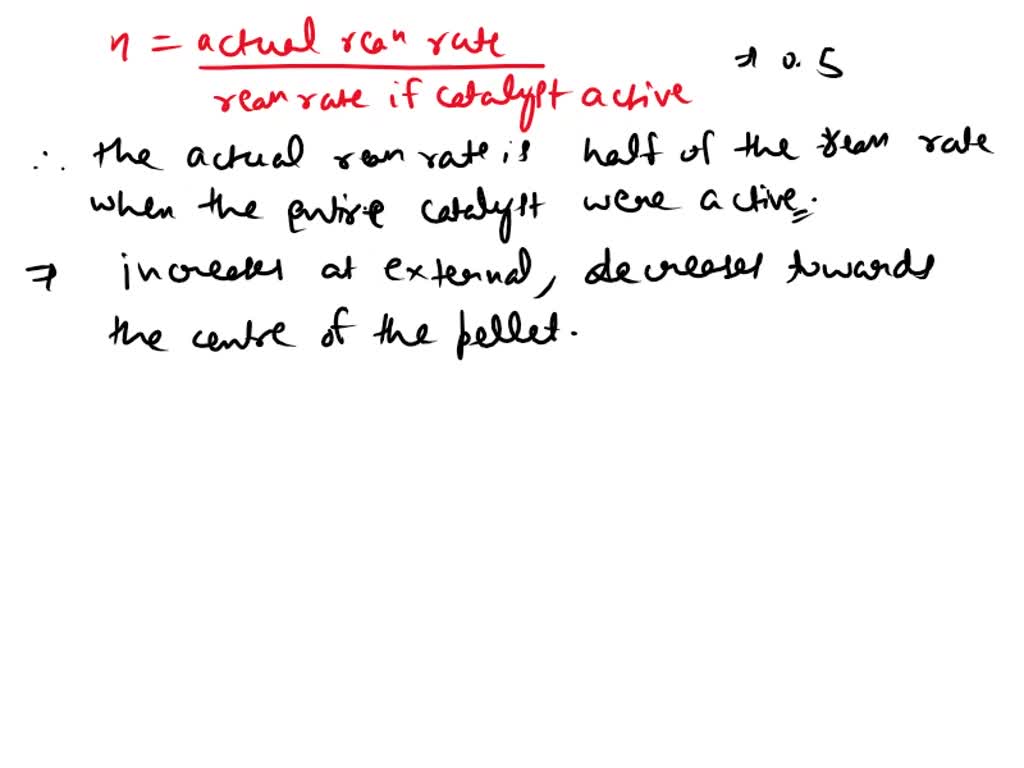 η = actual rean rate
rean rate if catalyst active ⇒ 0.5
∴ the actual rean rate is half of the rean rate
when the entire catalyst were active.
⇒ increases at external, decreases towards
the centre of the pellet.